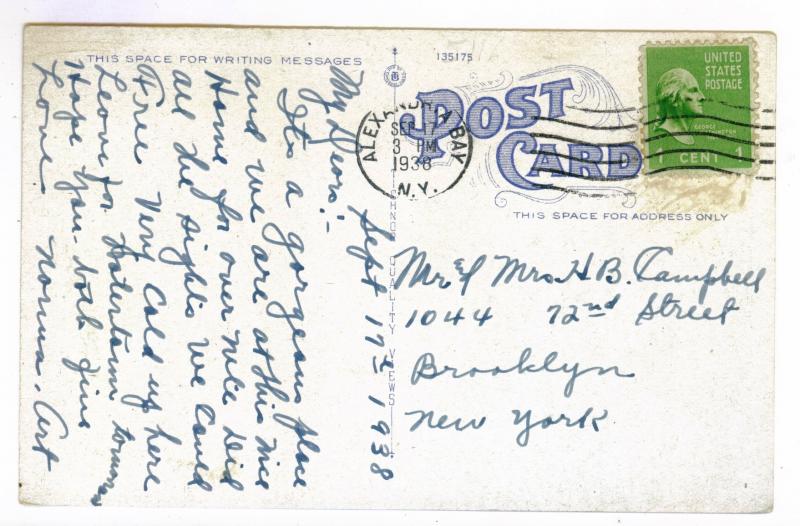 THIS SPACE FOR WRITING MESSAGES
135175
POST
CARD
ALEXANDRIA BAY
SEP 17
3 PM
1938
N.Y.
UNITED
STATES
POSTAGE
GEORGE
WASHINGTON
1 CENT 1
THIS SPACE FOR ADDRESS ONLY
QUALITY VIEWS
Sept 17th 1938
My Dears:-
Its a gorgeous place
and we are at this nice
Home for over nite Did
all the sights we could
Free Very cold up here
Leave for Watertown
Hope you both fine
Love Norma. Art
Mr & Mrs H B. Campbell
1044 72nd Street
Brooklyn
New York